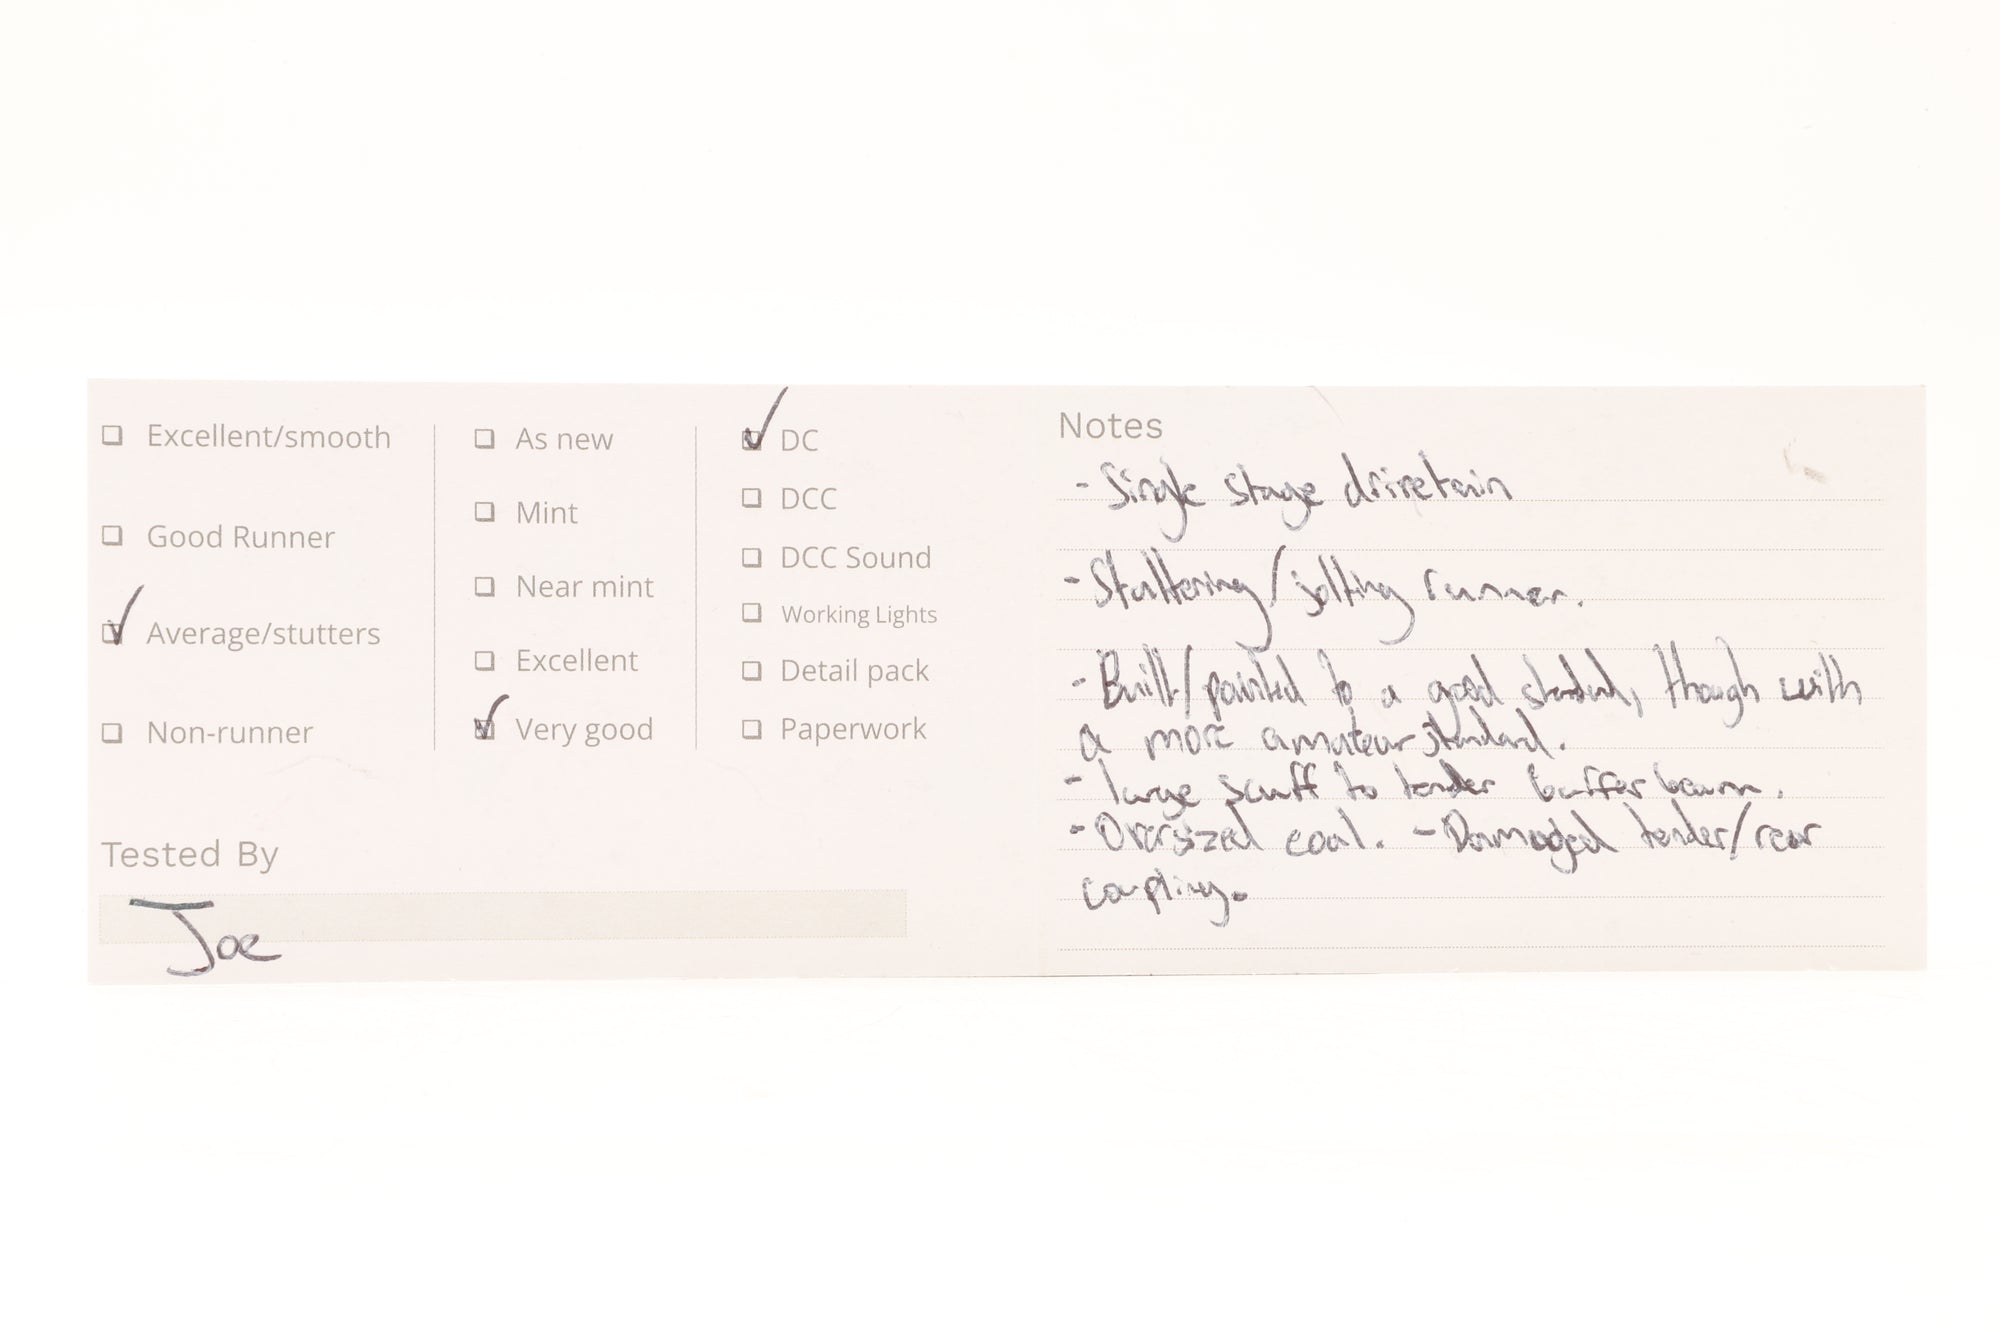 Excellent/smooth
Good Runner
Average/stutters
Non-runner
As new
Mint
Near mint
Excellent
Very good
DC
DCC
DCC Sound
Working Lights
Detail pack
Paperwork
Tested By
Joe
Notes
- Single stage drivetrain
- Stuttering/jolting runner.
- Built/painted to a good standard, though with
a more amateur standard.
- large scuff to tender buffer beam.
- Oversized coal. - Damaged tender/rear
coupling.